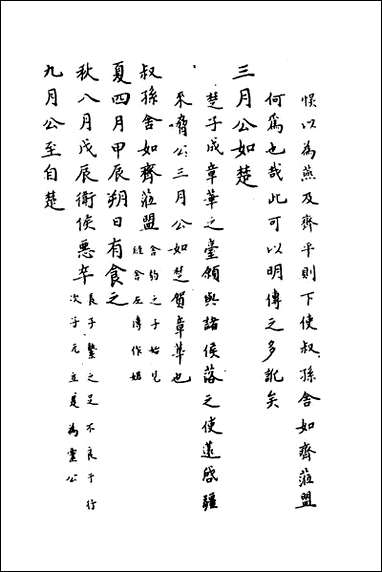 悮以為燕及齊平則下使叔孫舍如齊蒞盟
何為也哉此可以明傳之多訛矣
三月公如楚
楚子成章華之臺領與諸侯落之使薳啓疆
來脅公三月公如楚賀章華也
叔孫舍如齊蒞盟舍約之子始見
經舍左傳作婼
夏四月甲辰朔日有食之
秋八月戊辰衛侯惡卒長子縶之足不良于行
次子元立是為靈公
九月公至自楚